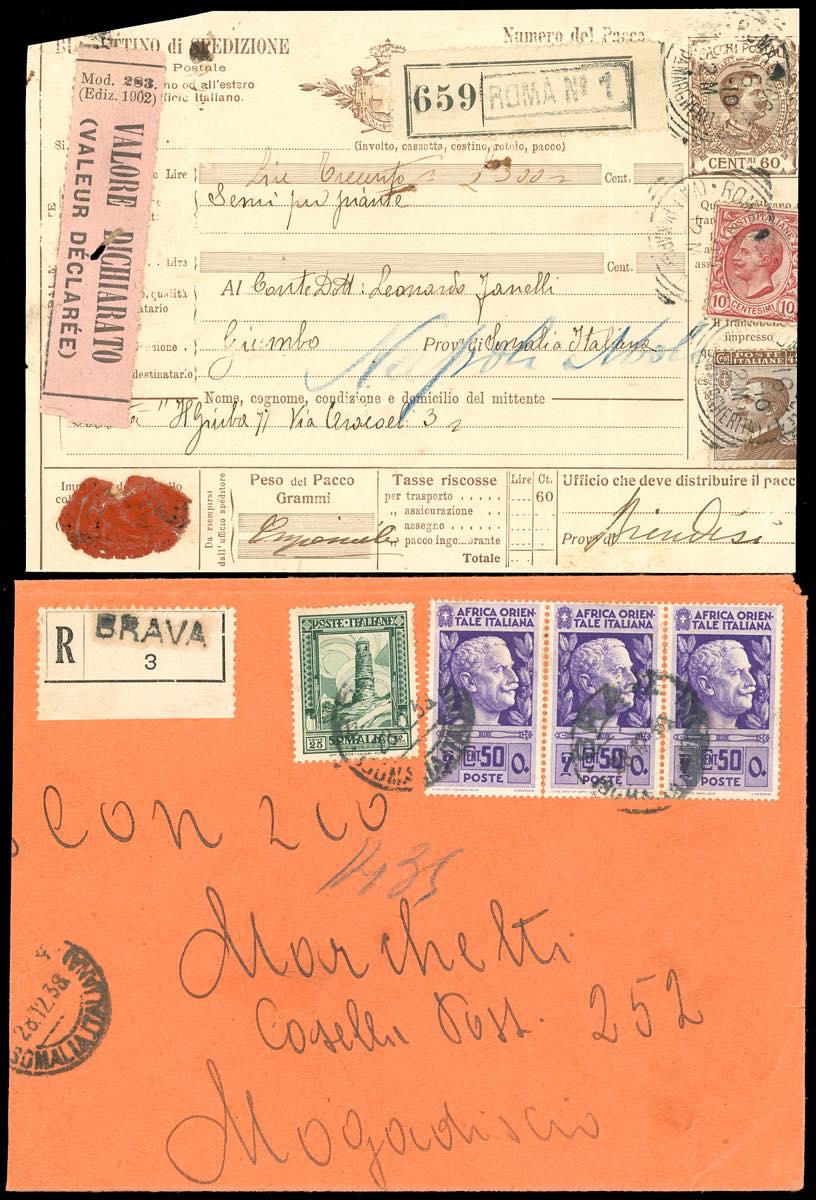 BU ETTINO di SPEDIZIONE
Numero del Pacco
Postale
no od all'estero
ficio Italiano.
Mod. 283.
(Ediz. 1902)
VALORE DICHIARATO
(VALEUR DÉCLARÉE)
659
ROMA Nº 1
PACCHI POSTALI
CENT.MI 60
(involto, cassetta, cestino, rotolo, pacco)
Lire
Lire Trecento £ 300
Cent.
Semi per piante
Lire
Cent.
qualità
Al Conte Dott: Leonardo Janelli
Giumbo
Prov. di Somalia Italiana
Napoli
destinatario
Nome, cognome, condizione e domicilio del mittente
Via Aracoeli 3
POSTE ITALIANE
10 CENTESIMI 10
Il francobollo
impresso
POSTE ITALIANE
Peso del Pacco
Grammi
Da riempirsi
dall'ufficio speditore
Tasse riscosse
Lire
Ct.
per trasporto . . . . .
60
„ assicurazione . .
assegno . . . . . .
pacco ingombrante
Totale
Ufficio che deve distribuire il pacc
Prov. di Brindisi
R
BRAVA
3
POSTE ITALIANE
25
SOMALIA
AFRICA ORIEN-
TALE ITALIANA
CENT. 50
POSTE
AFRICA ORIEN-
TALE ITALIANA
CENT. 50
POSTE
AFRICA ORIEN-
TALE ITALIANA
CENT. 50
POSTE
1435
Marchetti
Casella Post. 252
Mogadiscio
28.12.38
SOMALIA ITALIANA